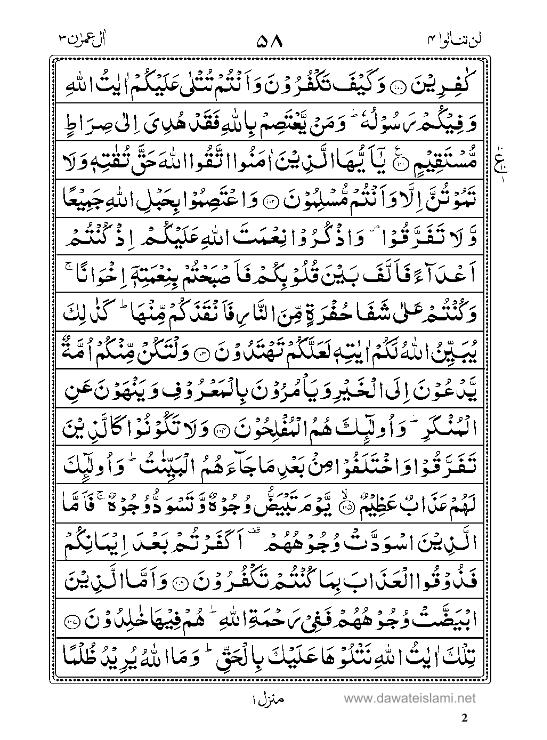 لن تنالوا ۴ ۵۸ اٰل عمرٰن ۳
كٰفِرِيْنَ ﴿۱۰۰﴾ وَكَيْفَ تَكْفُرُوْنَ وَاَنْتُمْ تُتْلٰى عَلَيْكُمْ اٰيٰتُ اللّٰهِ
وَفِيْكُمْ رَسُوْلُهٗ ؕ وَمَنْ يَّعْتَصِمْ بِاللّٰهِ فَقَدْ هُدِىَ اِلٰى صِرَاطٍ
مُّسْتَقِيْمٍ ﴿۱۰۱﴾ يٰۤاَيُّهَا الَّذِيْنَ اٰمَنُوا اتَّقُوا اللّٰهَ حَقَّ تُقٰتِهٖ وَلَا
تَمُوْتُنَّ اِلَّا وَاَنْتُمْ مُّسْلِمُوْنَ ﴿۱۰۲﴾ وَاعْتَصِمُوْا بِحَبْلِ اللّٰهِ جَمِيْعًا
وَّلَا تَفَرَّقُوْا ۪ وَاذْكُرُوْا نِعْمَتَ اللّٰهِ عَلَيْكُمْ اِذْ كُنْتُمْ
اَعْدَآءً فَاَلَّفَ بَيْنَ قُلُوْبِكُمْ فَاَصْبَحْتُمْ بِنِعْمَتِهٖۤ اِخْوَانًا ۚ
وَكُنْتُمْ عَلٰى شَفَا حُفْرَةٍ مِّنَ النَّارِ فَاَنْقَذَكُمْ مِّنْهَا ؕ كَذٰلِكَ
يُبَيِّنُ اللّٰهُ لَكُمْ اٰيٰتِهٖ لَعَلَّكُمْ تَهْتَدُوْنَ ﴿۱۰۳﴾ وَلْتَكُنْ مِّنْكُمْ اُمَّةٌ
يَّدْعُوْنَ اِلَى الْخَيْرِ وَيَاْمُرُوْنَ بِالْمَعْرُوْفِ وَيَنْهَوْنَ عَنِ
الْمُنْكَرِ ؕ وَاُولٰٓئِكَ هُمُ الْمُفْلِحُوْنَ ﴿۱۰۴﴾ وَلَا تَكُوْنُوْا كَالَّذِيْنَ
تَفَرَّقُوْا وَاخْتَلَفُوْا مِنْۢ بَعْدِ مَا جَآءَهُمُ الْبَيِّنٰتُ ؕ وَاُولٰٓئِكَ
لَهُمْ عَذَابٌ عَظِيْمٌ ﴿۱۰۵﴾ يَّوْمَ تَبْيَضُّ وُجُوْهٌ وَّتَسْوَدُّ وُجُوْهٌ ۚ فَاَمَّا
الَّذِيْنَ اسْوَدَّتْ وُجُوْهُهُمْ ۟ اَكَفَرْتُمْ بَعْدَ اِيْمَانِكُمْ
فَذُوْقُوا الْعَذَابَ بِمَا كُنْتُمْ تَكْفُرُوْنَ ﴿۱۰۶﴾ وَاَمَّا الَّذِيْنَ
ابْيَضَّتْ وُجُوْهُهُمْ فَفِىْ رَحْمَةِ اللّٰهِ ؕ هُمْ فِيْهَا خٰلِدُوْنَ ﴿۱۰۷﴾
تِلْكَ اٰيٰتُ اللّٰهِ نَتْلُوْهَا عَلَيْكَ بِالْحَقِّ ؕ وَمَا اللّٰهُ يُرِيْدُ ظُلْمًا
منزل ۱
www.dawateislami.net
2